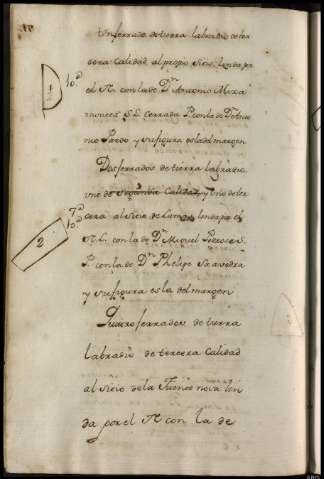 Un ferrado de tierra labradio de ter
cera Calidad al propio Sitio, linda po
el N. con la de Dn Antonio Mira
S. L. Cerrada P. con la de Ton
nio Pardo y su figura es la del margen
1
10 d
Dos ferrados de tierra labradio
uno de Segunda Calidad, y uno de ter
cera al sitio de linda por el
N. L. con la de Dn Miguel S.
P. con la de Dn Phelipe Saavedra
y su figura es la del margen
7 d
10 d
2
Quatro ferrados de tierra
labradio de tercera Calidad
al sitio de la Fuente nova lin
da por el N con la de